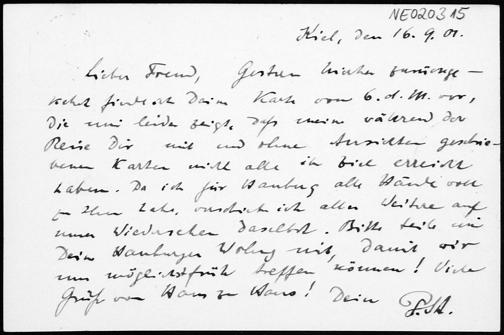 NE020315
Kiel, den 16. 9. 01.
Lieber Freund, Gestern hierher zurückge-
kehrt finde ich Deine Karte vom 6. d. M. vor,
die mir leider zeigt, daß meine während der
Reise Dir mit und ohne Ansichten geschrie-
benen Karten nicht alle ihr Ziel erreicht
haben. Da ich für Hamburg alle Hände voll
zu thun habe, verschiebe ich alles Weitere auf
unser Wiedersehen daselbst. Bitte teile mir
Deine Hamburger Wohng mit, damit wir
uns möglichst früh treffen können! Viele
Grüße von Haus zu Haus! Dein P. St.